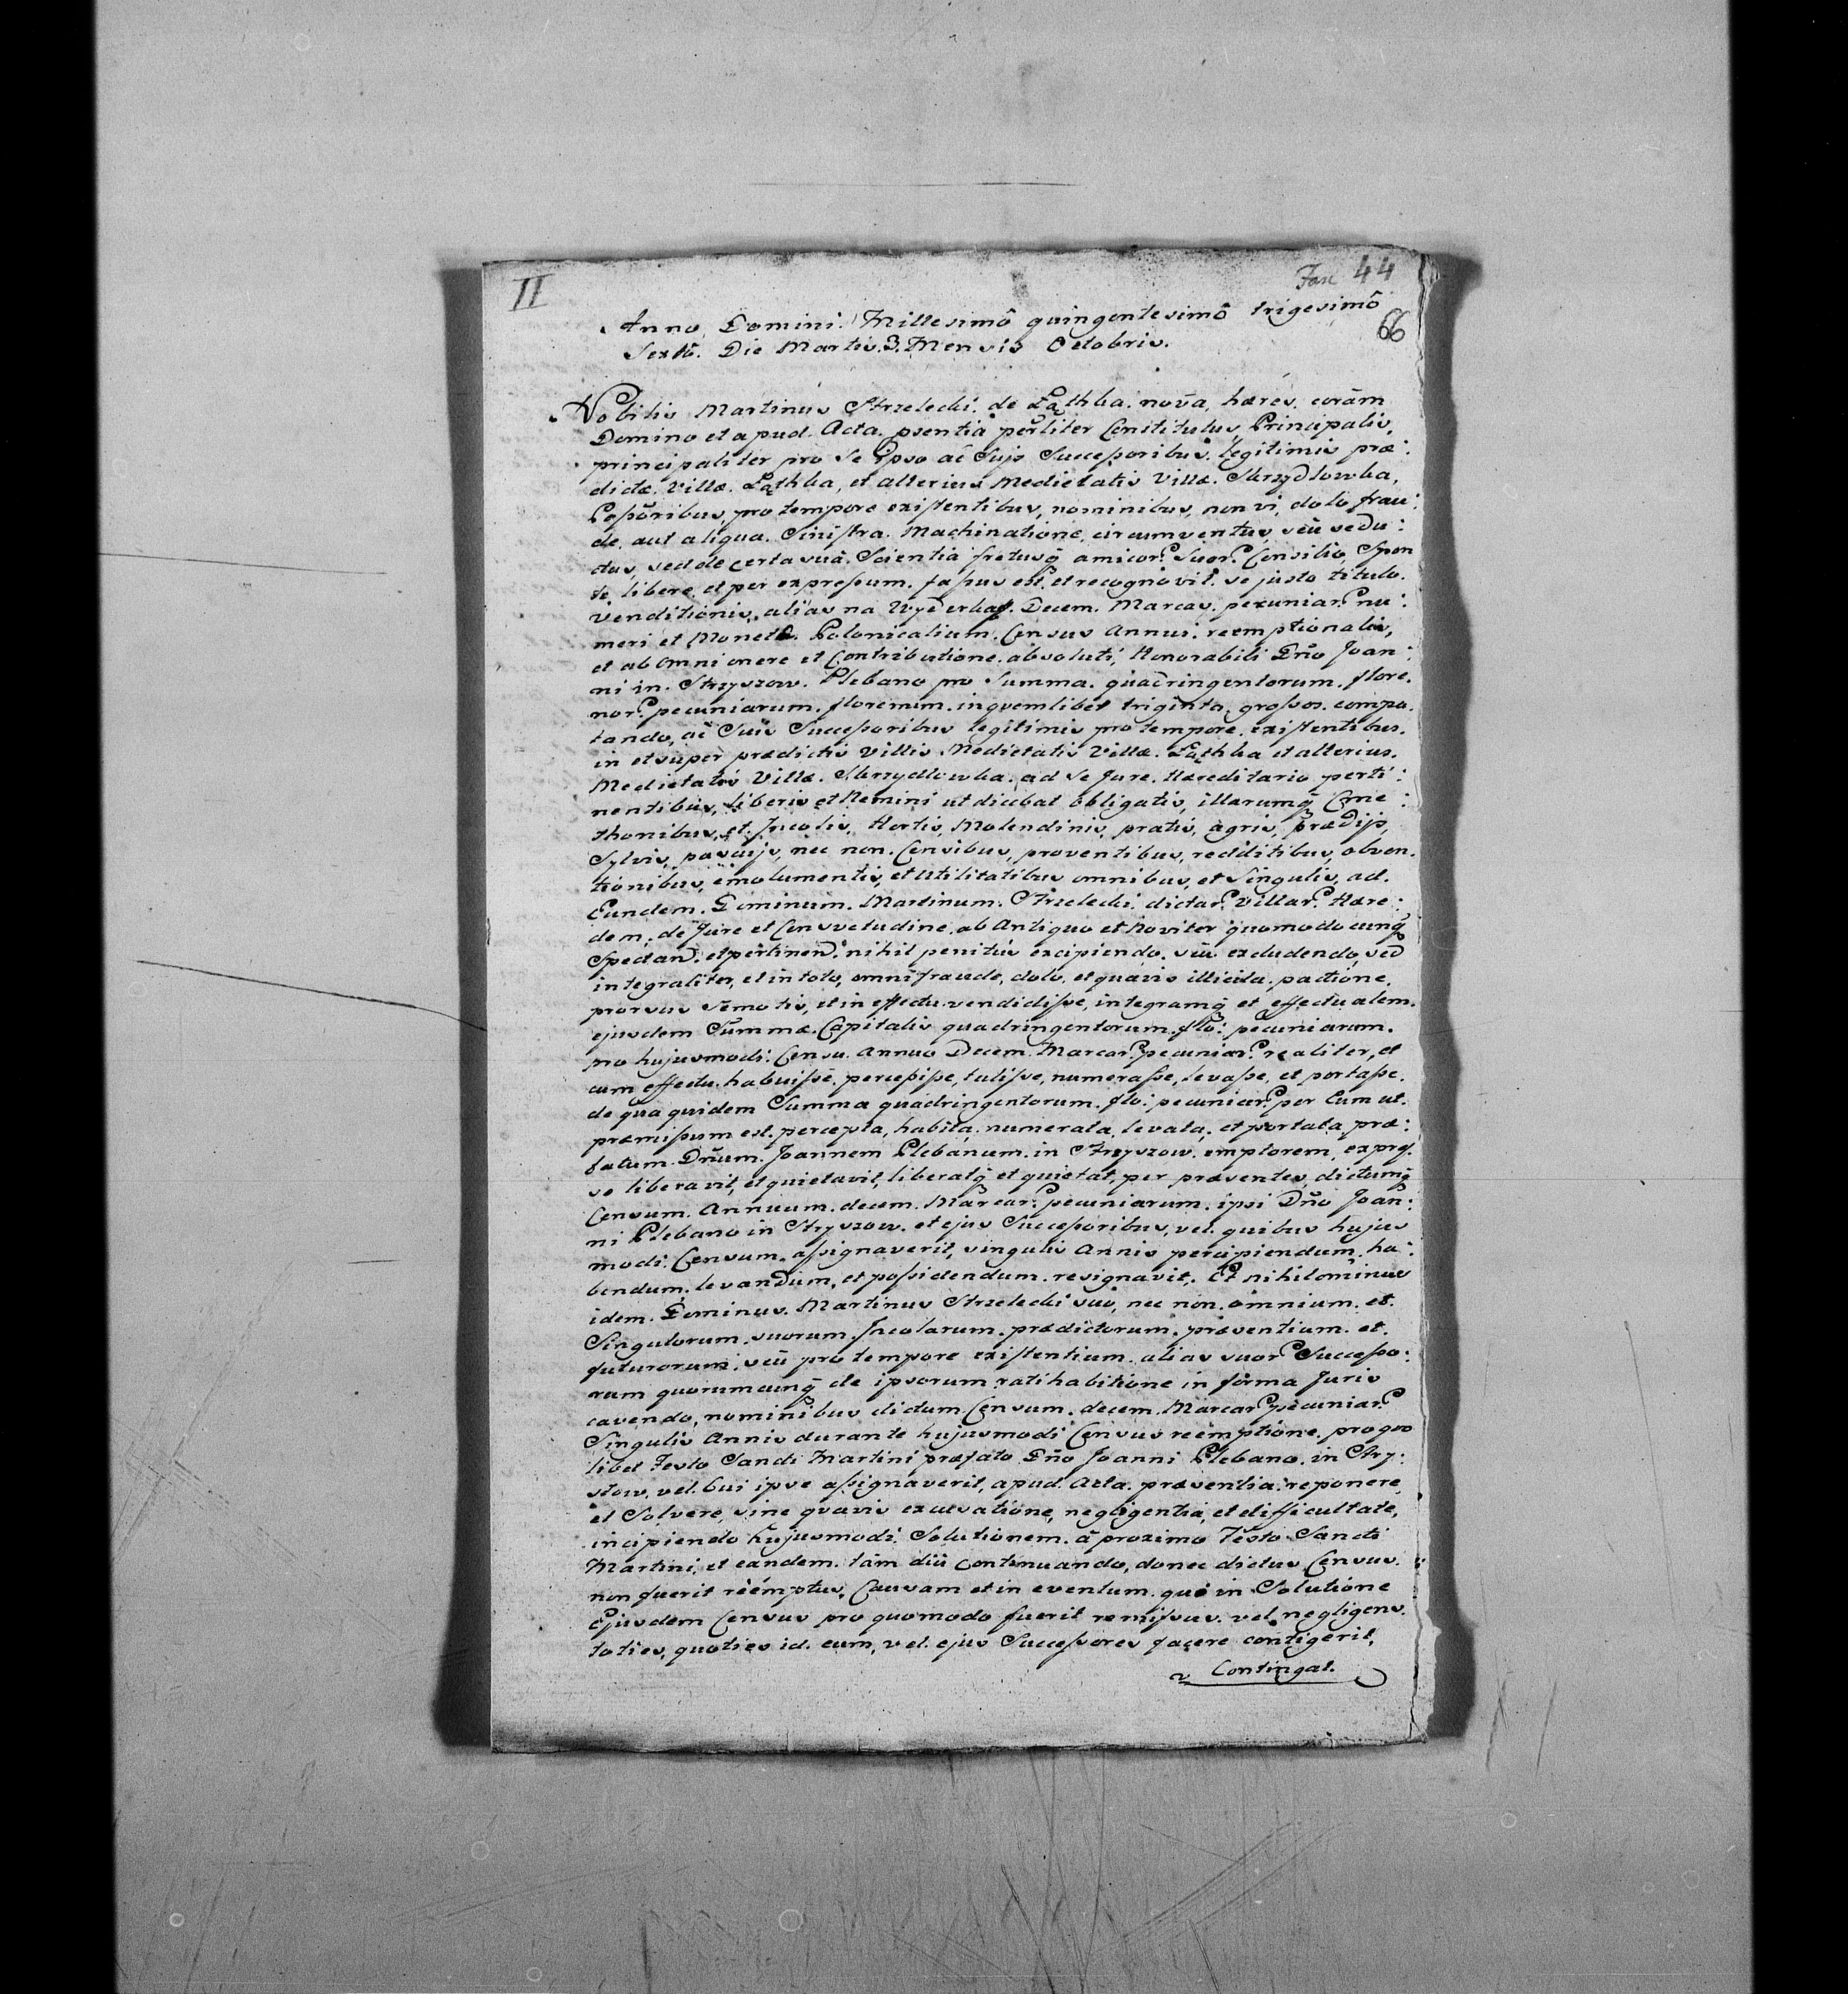 II
Fasc 44
66
Anno Domini. Millesimô quingentesimô trigesimô
Sextô. Die Martis. 3. Mensis Octobris.
Nobilis Martinus Strzelecki. de Łąthka. nova, hæres. coràm
Domino et apud. Acta. psentia psrliter Constitutus, Principalis,
principaliter pro Se Ipso ac Sujs Successoribus. legitimis præ:
dictæ. Villæ. Łąthka, et alterius Medietatis Villæ. Skrzydlowka,
Possoribus, pro tempore existentibus, nominibus, non vi, dolo, frau:
de. aut aliqua. Sinistra. Machinatione, circumventus, seù sedu:
ctus, sed de certa suâ. Scientiâ fretusq amicor. Suor. Consilio, Spon
te libere, et per expressum. fassus est, et recognovit. se justo titulo.
Venditionis, alias na Wyderkaf. Decem. Marcas. pecuniar. nu:
meri et Monetæ. Polonicalium. Census Annui. reemptionalis,
et ab omni onere et Contributione. absoluti, Honorabili Dño Joan:
ni in. Strzyszow. Plebano pro Summa. quadringentorum. flore.
nor. pecuniarum. florenum. in quemlibet triginta. grossos. compu.
tando, ac Suis Successoribus legitimis pro tempore. existentibus.
in et super prædictis Villis Medietatis Villæ. Łąthka et alterius.
Medietatis Villæ. Skrzydlowka. ad Se Jure. Hæreditario perti:
nentibus, liberis et Nemini ut dicebat obligatis, illarumq Cme:
thonibus, et. Incolis, Hortis, Molendinis, pratis, agris, prædijs,
Sylvis, pascuis, nec non. Censibus, proventibus, redditibus, obven.
tionibus, emolumentis, et Utilitatibus omnibus, et Singulis, ad.
Eundem. Dominum. Martinum. Strzelecki. dictar. Villar. Hære:
dem, de Jure et Consvetudine. ab Antiquo et Noviter quomodocunq
Spectan: et pertinen: nihil penitùs excipiendo. seu excludendo, sed
integraliter, et in toto, omni fraude, dolo, et quavis illicita. pactione.
prorsus semotis, et in effectu vendidisse, integramq et effectualem.
ejusdem Summæ. Capitalis quadringentorum. flo: pecuniarum.
pro hujusmodi. Censu. Annuo Decem. Marcar. pecuniar. realiter, et
cum effectu. habuisse. percepisse, tulisse, numerasse, levasse, et portasse.
de qua quidem Summa quadringentorum. flo: pecuniar. per Eum ut.
præmissum est. percepta, habita. numerata, levata, et portata, præ:
fatum. Dñum. Joannem Plebanum. in Strzyszow. emptorem, expres.
se liberavit, et quietavit, liberatq et quietat, per præsentes, dictumq
Censum. Annuum. decem. Marcar. Pecuniarum. ipsi Dño Joan:
ni Plebano in Stryszow. et ejus Successoribus, vel. quibus hujus
modi. Censum. assignaverit, singulis Annis percipiendum. ha:
bendum, levandum, et possidendum. resignavit. Et nihilominus
idem. Dominus. Martinus Strzelecki suo, nec non. omnium. et.
Singulorum. suorum. Incolarum. prædictorum. præsentium. et.
futurorum. seu pro tempore existentium. alias suor. Successo:
rum quorumcunq de ipsorum ratihabitione in forma Juris
cavendo, nominibus dictum. Censum. decem. Marcar. pecuniar.
Singulis Annis durante hujusmodi Census reemptione. pro quo
libet Festo Sancti Martini præfato Dño Joanni Plebano. in Stry:
szow, vel. Cui ipse assignaverit, apud. Acta. præsentia. reponere,
et Solvere, sine quavis excusatione, negligentia, et difficultate,
incipiendo hujusmodi. Solutionem. â proximo Festo Sancti
Martini, et eandem. tàm diù Continuando, donec dictus Census.
non fuerit reemptus, Causam et in eventum. quo in Solutione
Ejusdem Census pro quomodo fuerit remissus. vel. negligens.
toties, quoties id. eum, vel. ejus Successores facere contigerit,
Contingat.